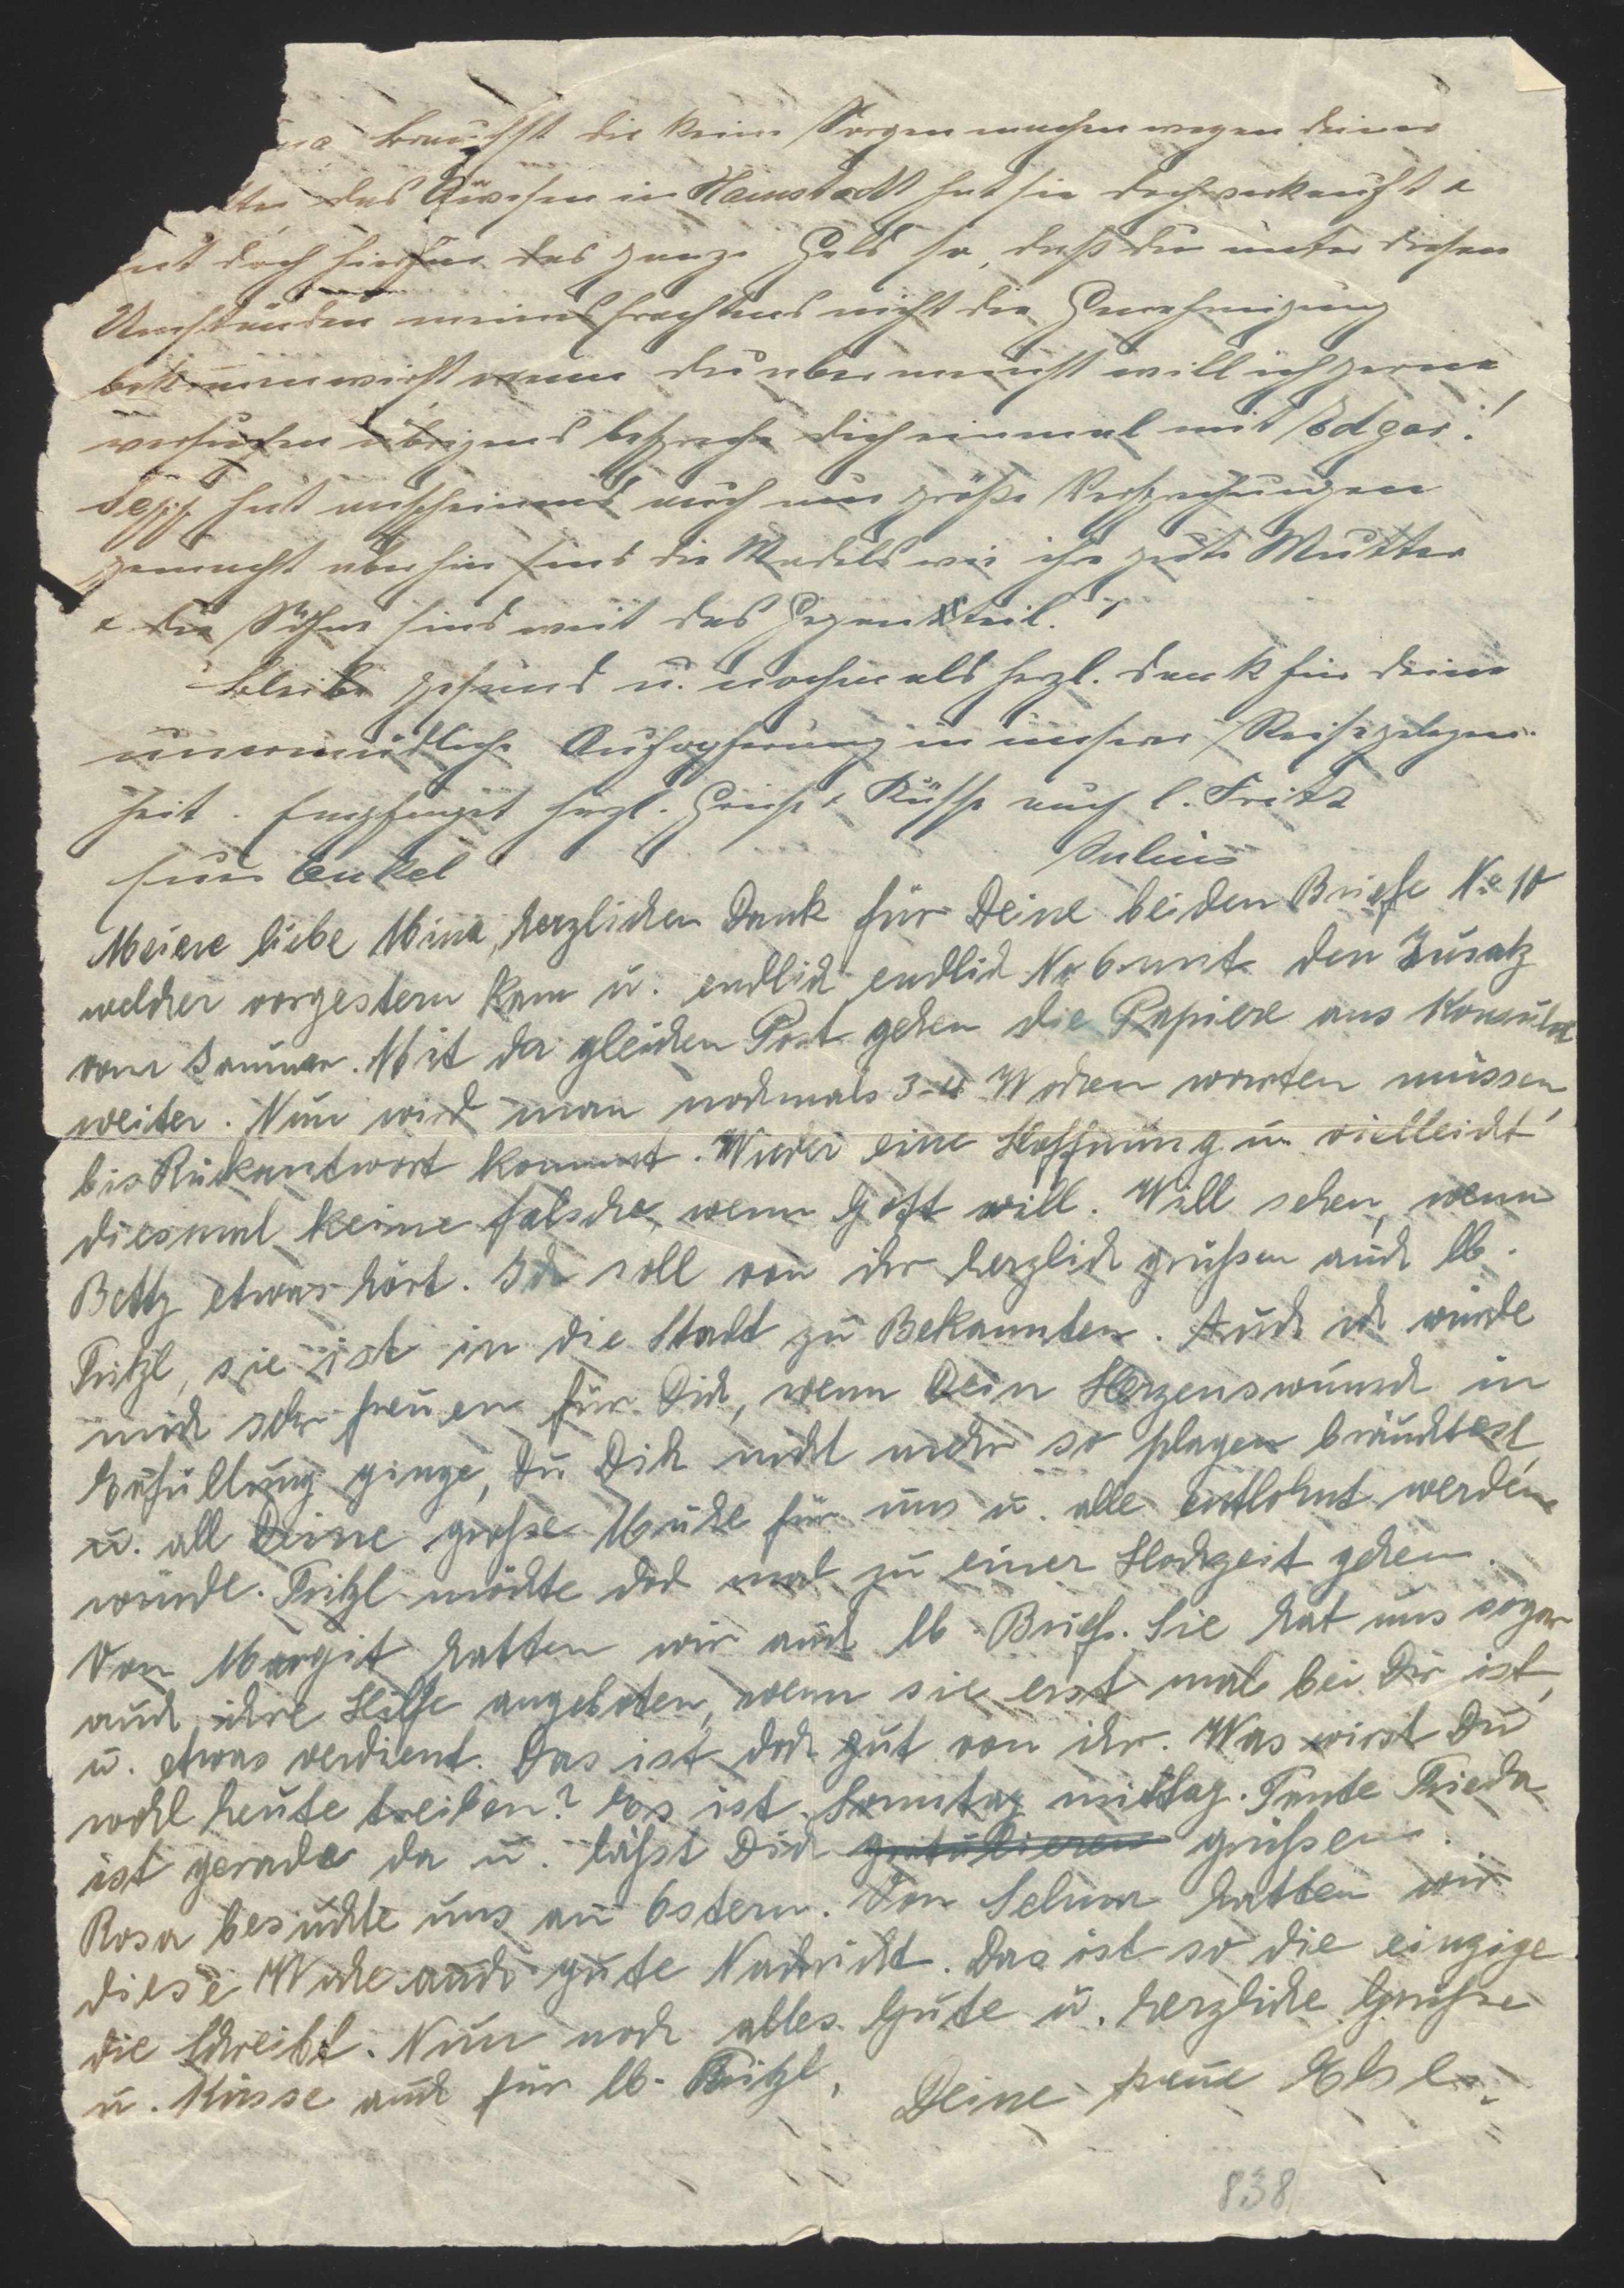 brauchst dir keine Sorgen machen wegen deiner
das Anwesen in Hainstadt hat sie doch verkauft &
doch hierfür das ganze Geld so, daß du unter diesen
Umständen meines Erachtens nicht die Genehmigung
bekommen wirst wenn du aber meinst will ich gerne
versuchen übrigens bespreche dich einmal mit Edgar!
Sepp hat anscheinend auch nur große Versprechungen
gemacht aber hier sind die Madels wie ihre gute Mutter
& die Söhne sind weit das Gegenteil.
bleibe gesund u. nochmals herzl. Dank für deine
unermüdliche Aufopferung in unserer Reisegelegen-
heit. Empfanget herzl. Grüße & Küsse auch l. Fritz
Euer Onkel Julius
Meine liebe Mina, herzlichen Dank für Deine beiden Briefe No 10
welcher vorgestern kam u. endlich endlich No 6 mit den Zusatz
vom Januar. Mit der gleichen Post gehen die Papiere ans Konsulat
weiter. Nun wird man nochmals 3-4 Wochen warten müssen,
bis Rükantwort kommt. Wieder eine Hoffnung u. vielleicht
diesmal keine falsche, wenn Gott will. Will sehen, wenn
Betty etwas hört. Ich soll von ihr herzlich grüßen auch lb.
Fritzl, sie ist in die Stadt zu Bekannten. Auch ich würde
mich sehr freuen für Dich, wenn Dein Herzenswunsch in
Erfüllung ginge, Du Dich nicht mehr so plagen bräuchtest,
u. all Deine große Mühe für uns u. alle entlohnt werden
würde. Fritzl möchte doch mal zu einer Hochzeit gehen.
Von Margit hatten wir auch lb. Brief. Sie hat uns sogar
auch ihre Hilfe angeboten, wenn sie erst mal bei Dir ist,
u. etwas verdient. Das ist doch gut von ihr. Was wirst Du
wohl heute treiben? Es ist Sonntag mittag. Tante Frieda
ist gerade da u. läßt Dich gratulieren grüßen.
Rosa besuchte uns an Ostern. Von Selma hatten wir
diese Woche auch gute Nachricht. Das ist so die einzige
die schreibt. Nun noch alles Gute u. herzliche Grüße
u. Küsse auch für lb. Fritzl, Deine treue Else.
838